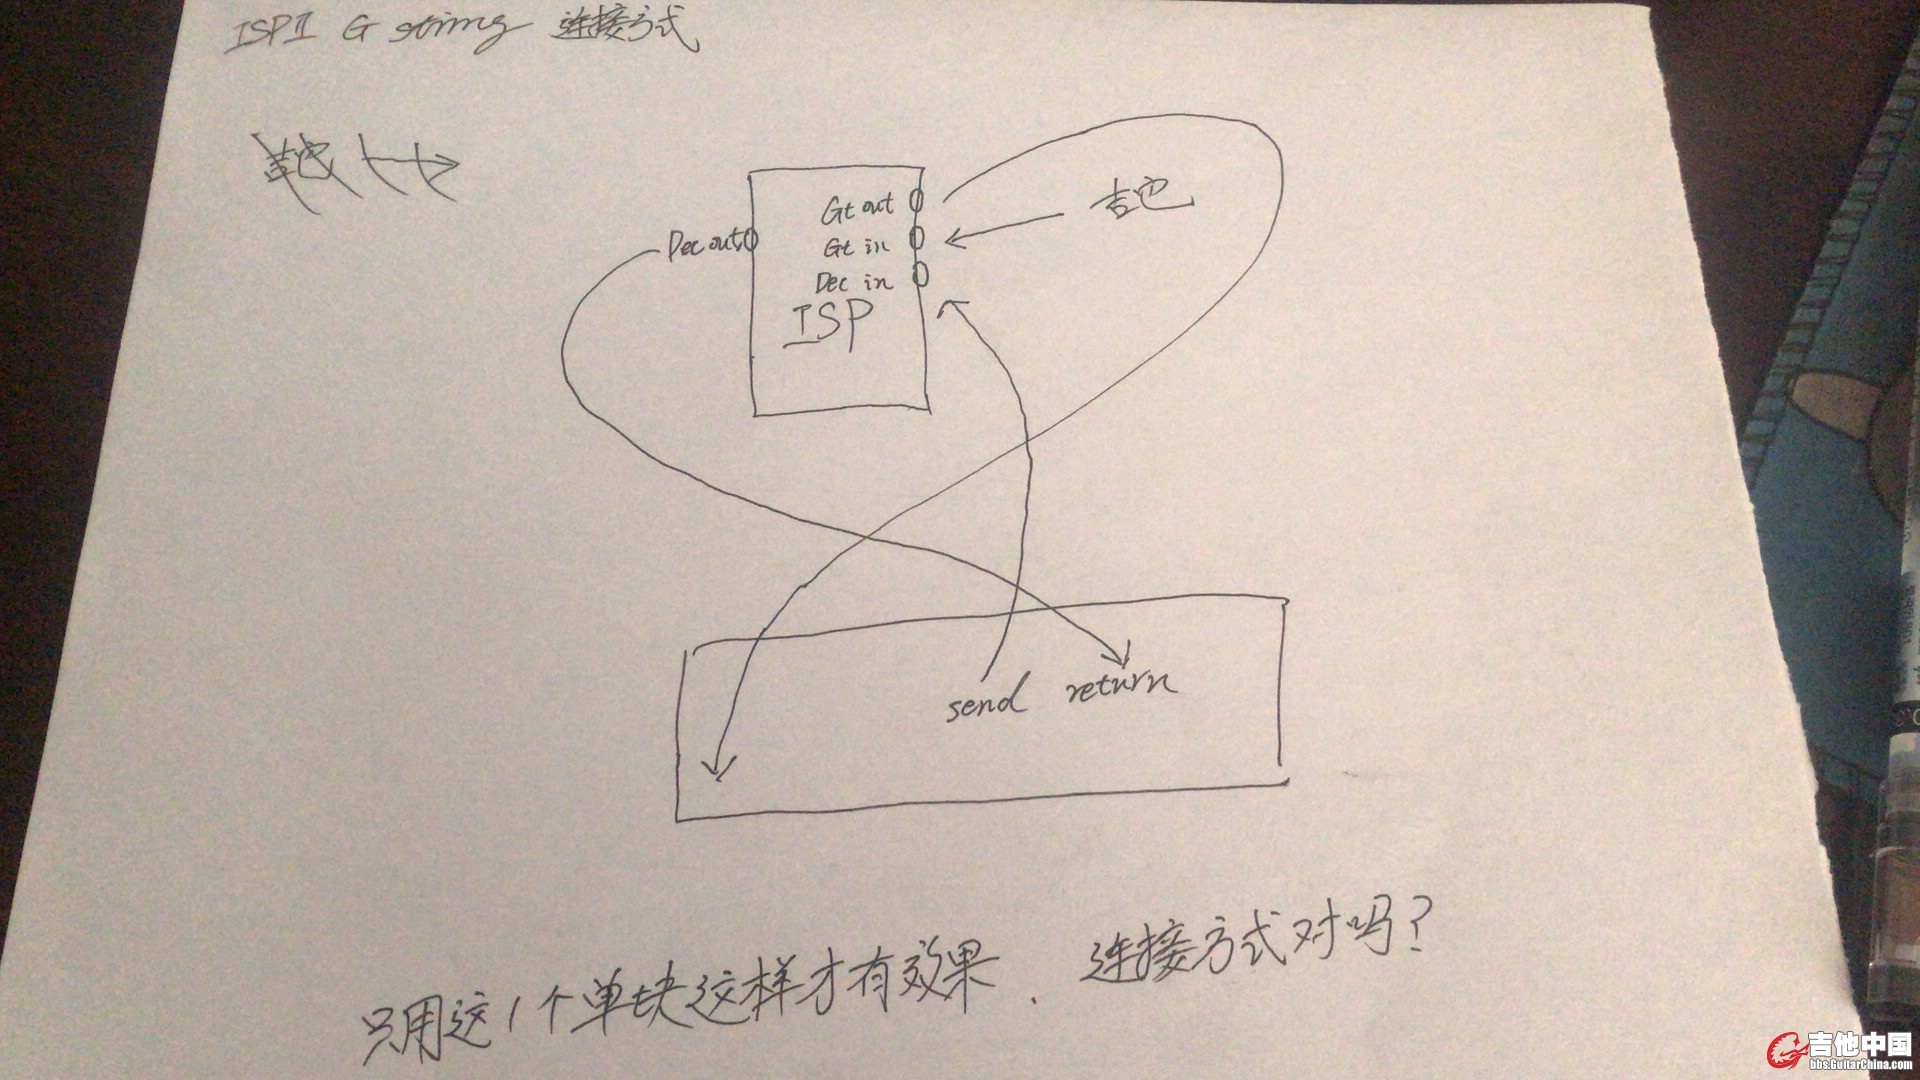 ISP II G string 连接方式
Gt out
吉它
Dec out
Gt in
Dec in
ISP
send return
只用这1个单块这样才有效果. 连接方式对吗?
吉他中国
bbs.GuitarChina.com